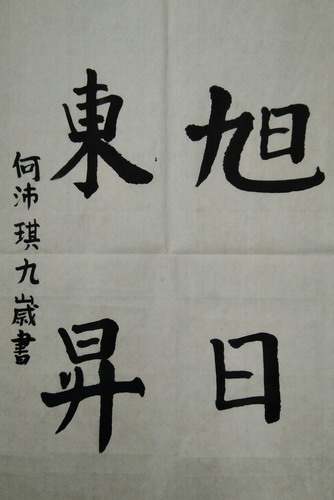 旭日
東昇
何沛琪九歲書